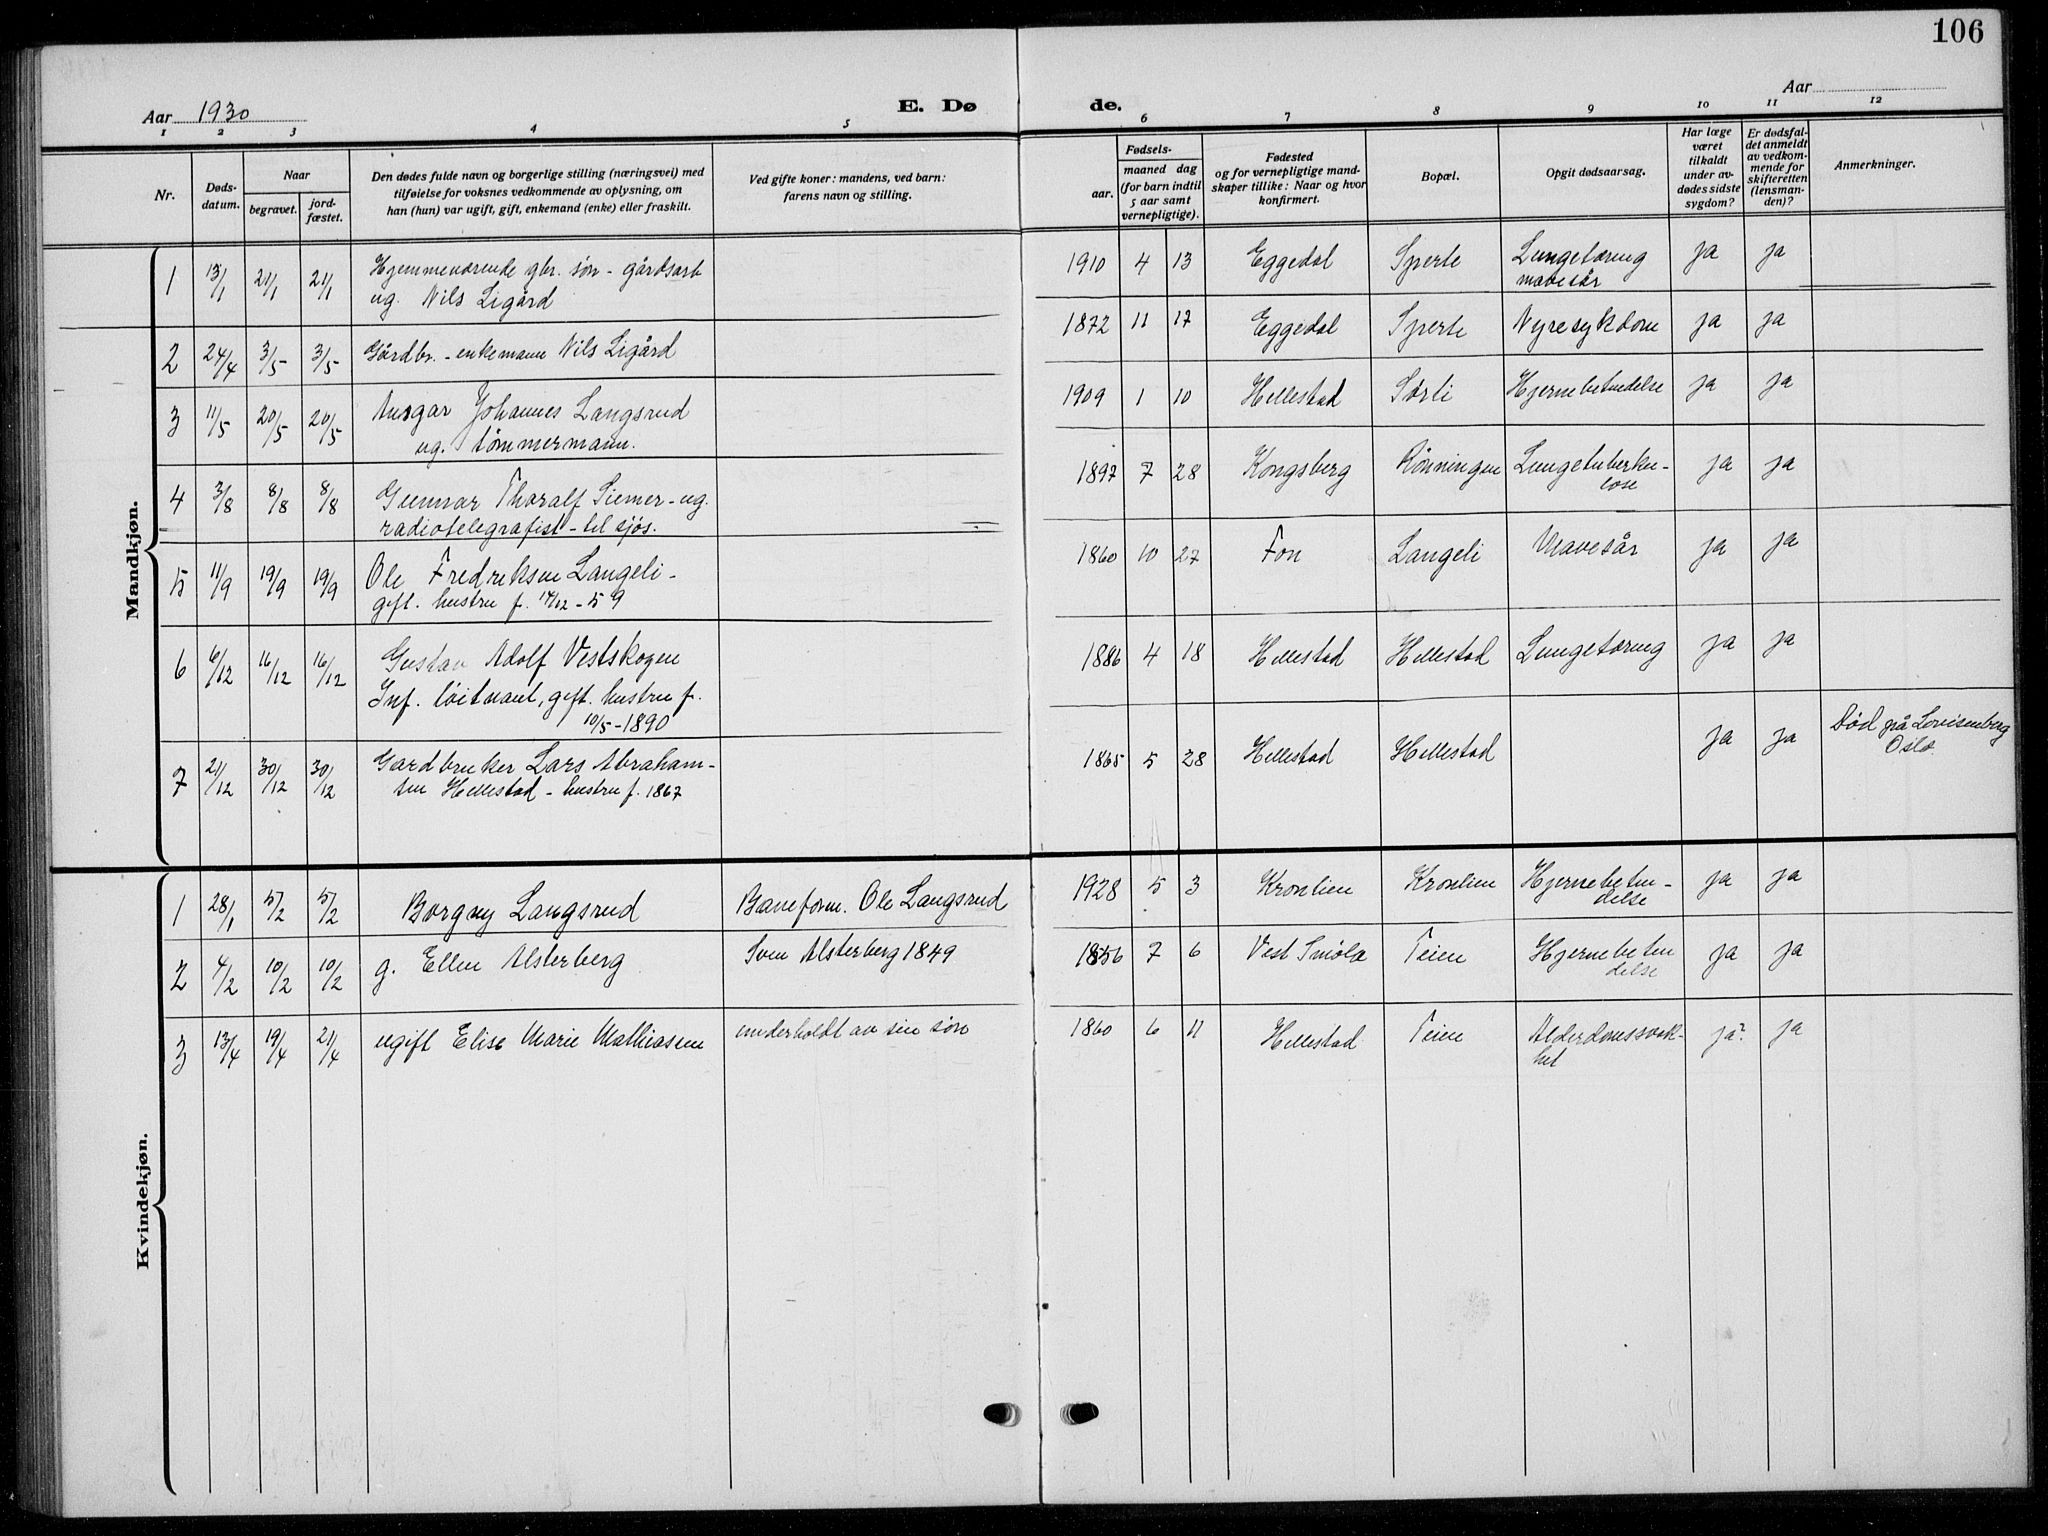 106
Aar 1930
E. Dø
de.
Aar
1 2 3 4 5 6 7 8 9 10 11 12
Nr.
Døds-
datum.
Naar
begravet.
jord-
fæstet.
Den dødes fulde navn og borgerlige stilling (næringsvei) med
tilføielse for voksnes vedkommende av oplysning, om
han (hun) var ugift, gift, enkemand (enke) eller fraskilt.
Ved gifte koner: mandens, ved barn:
farens navn og stilling.
Fødsels-
aar.
maaned dag
(for barn indtil
5 aar samt
vernepligtige).
Fødested
og for vernepligtige mand-
skaper tillike: Naar og hvor
konfirmert.
Bopæl.
Opgit dødsaarsag.
Har læge
været
tilkaldt
under av-
dødes sidste
sygdom?
Er dødsfal-
det anmeldt
av vedkom-
mende for
skifteretten
(lensman-
den)?
Anmerkninger.
Mandkjøn.
1 13/1 21/1 21/1 Hjemmeværende gbr. søn - gårdsarb
ug. Nils Ligård
1910 4 13 Eggedal Sperle Lungetæring
mavesår
ja ja
2 24/4 3/5 3/5 Gårdbr. - enkemann Nils Ligård
1872 11 17 Eggedal Sperle Nyresykdom ja ja
3 11/5 20/5 20/5 Ansgar Johannes Langsrud
ug. tømmermann.
1909 1 10 Hillestad Sørli Hjernebetendelse ja ja
4 3/8 8/8 8/8 Gunnar Thoralf Siemer - ug.
radiotelegrafist - til sjøs.
1897 7 28 Kongsberg Rønningen Lungetuberku-
lose
ja ja
5 11/9 19/9 19/9 Ole Fredriksen Langeli -
gift. hustru f. 14/12 - 59
1860 10 27 Fon Langeli Mavesår ja ja
6 6/12 16/12 16/12 Gustav Adolf Vestskogen
Inf. løitnant, gift. hustru f.
10/5 - 1890
1886 4 18 Hillestad Hillestad Lungetæring ja ja
7 21/12 30/12 30/12 Gardbruker Lars Abraham-
sen Hillestad - hustru f. 1867
1865 5 28 Hillestad Hillestad ja ja Død på Lovisenberg
Oslo
Kvindekjøn.
1 28/1 5/2 5/2 Borgny Langsrud Baneform. Ole Langsrud
1928 5 3 Kronlien Kronlien Hjernebeten-
delse
ja ja
2 4/2 10/2 10/2 g. Ellen Alsterberg Sven Alsterberg 1849
1856 7 6 Vest Smøla Teien Hjernebeten
delse
ja ja
3 13/4 19/4 21/4 ugift Elise Marie Mathiasen underholdt av sin søn
1860 6 11 Hillestad Teien Alderdomssvak-
het
ja? ja